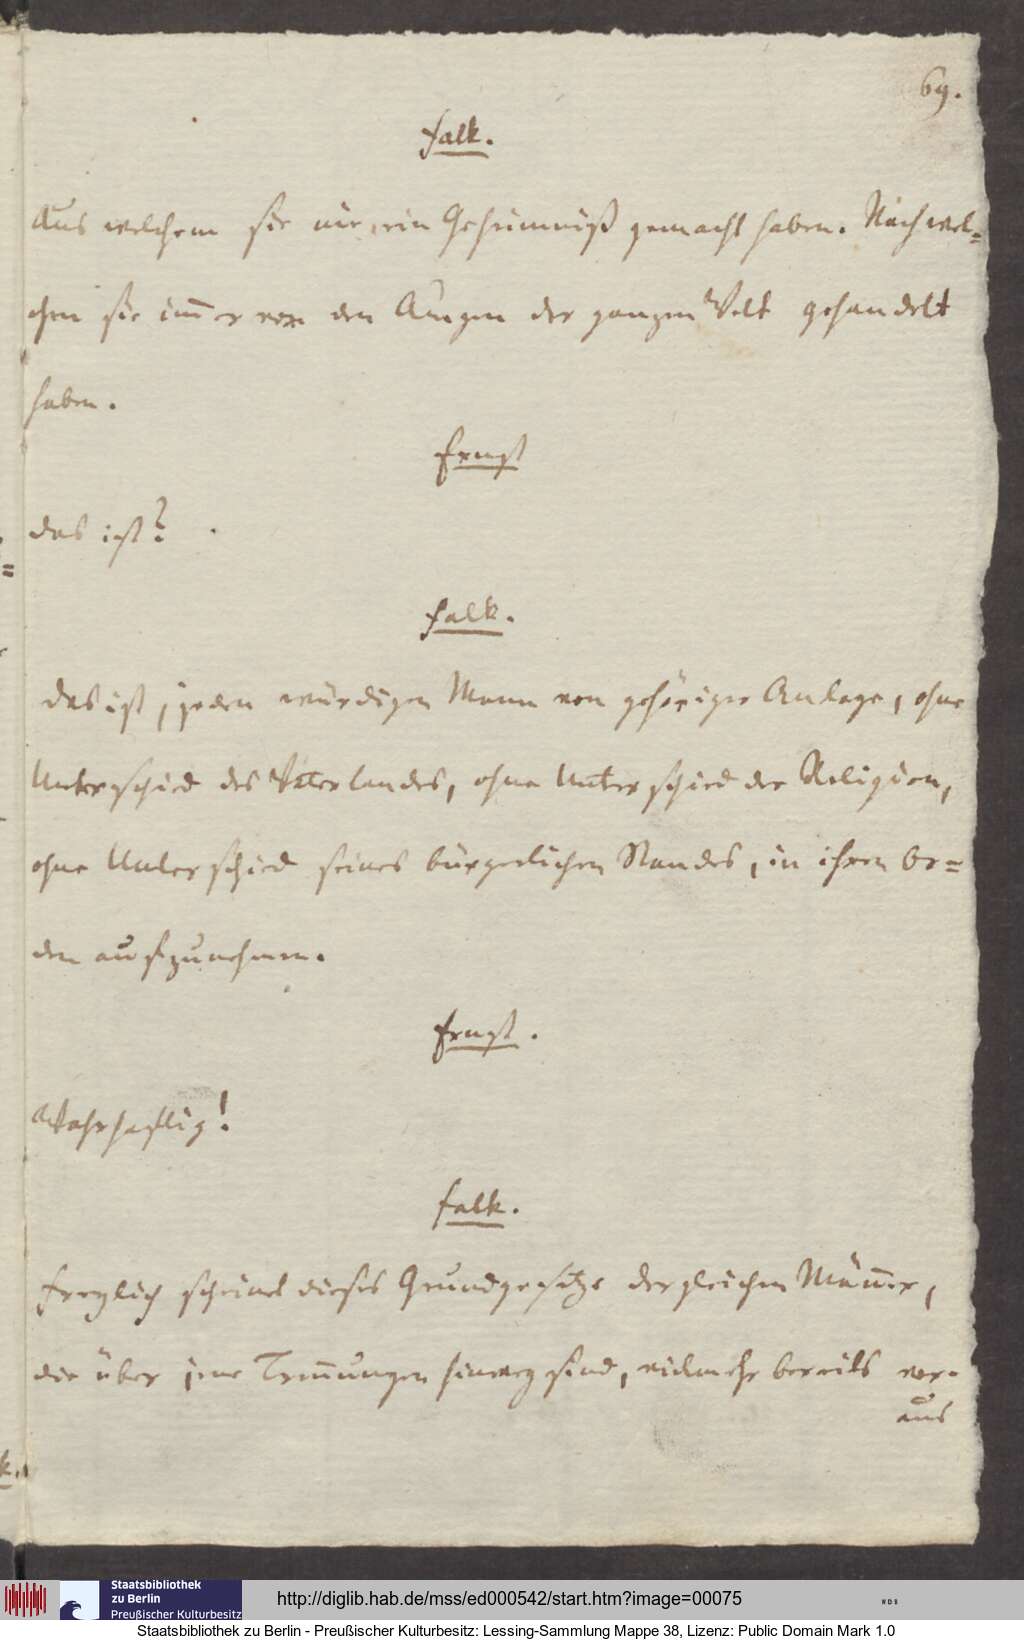 69.
Falk.
Aus welchem sie nie ein Geheimniß gemacht haben. Nach wel=
chen sie im̅er vor den Augen der ganzen Welt gehandelt
haben.
Ernst
das ist?
Falk.
das ist, jeden würdigen Mann von gehöriger Anlage, ohne
Unterschied des Vaterlandes, ohne Unterschied der Religion,
ohne Unterschied seines bürgerlichen Standes, in ihren Or=
den aufzunehmen.
Ernst.
Wahrhaftig!
Falk.
Freylich scheinet dieses Grundgesetze dergleichen Män̅er,
die über jene Tren̅ungen hinweg sind, vielmehr bereits vor-
aus
Staatsbibliothek
zu Berlin
Preußischer Kulturbesitz
http://diglib.hab.de/mss/ed000542/start.htm?image=00075
WDB
Staatsbibliothek zu Berlin - Preußischer Kulturbesitz: Lessing-Sammlung Mappe 38, Lizenz: Public Domain Mark 1.0